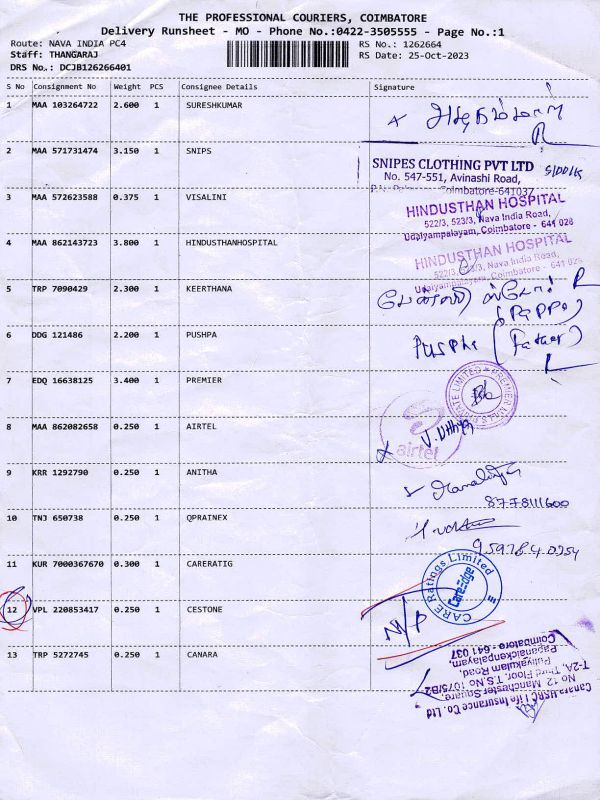 THE PROFESSIONAL COURIERS, COIMBATORE
Delivery Runsheet - MO - Phone No.:0422-3505555 - Page No.:1
Route: NAVA INDIA PC4 RS No.: 1262664
Staff: THANGARAJ RS Date: 25-Oct-2023
DRS No.: DCJB126266401
S No Consignment No Weight PCS Consignee Details Signature
1 MAA 103264722 2.600 1 SURESHKUMAR
2 MAA 571731474 3.150 1 SNIPS
SNIPES CLOTHING PVT LTD
No. 547-551, Avinashi Road,
Coimbatore-641037
3 MAA 572623588 0.375 1 VISALINI
HINDUSTHAN HOSPITAL
522/3, 523/3, Nava India Road,
Udaiyampalayam, Coimbatore - 641 028
4 MAA 862143723 3.800 1 HINDUSTHANHOSPITAL
HINDUSTHAN HOSPITAL
522/3, 523/3, Nava India Road,
Udaiyampalayam, Coimbatore - 641 028
5 TRP 7090429 2.300 1 KEERTHANA
6 DDG 121486 2.200 1 PUSHPA
Pushpa (Father)
7 EDQ 16638125 3.400 1 PREMIER
PREMIER MILLS PRIVATE LIMITED
8 MAA 862082658 0.250 1 AIRTEL
airtel
9 KRR 1292790 0.250 1 ANITHA
8778111600
10 TNJ 650738 0.250 1 QPRATNEX
11 KUR 7000367670 0.300 1 CARERATIG
CARE Ratings Limited
CareEdge
12 VPL 220853417 0.250 1 CESTONE
N/P
13 TRP 5272745 0.250 1 CANARA
Canara HSBC Life Insurance Co. Ltd
No 12, Manchester Square,
T-2A, Third Floor, T.S.No 1075/B2
Puliyakulam Road,
Papanaickenpalayam,
Coimbatore - 641 037